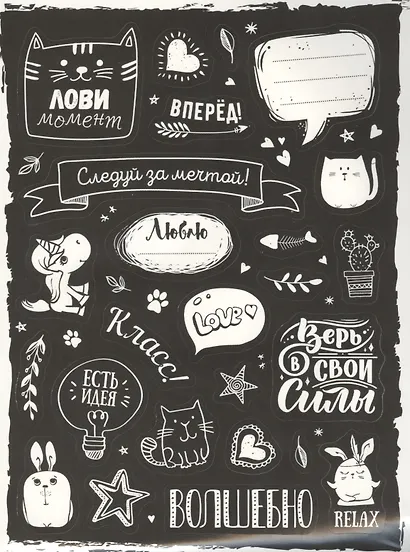 ЛОВИ
момент
ВПЕРЁД!
Следуй за мечтой!
Люблю
LOVE
Класс!
Верь
в свои
Силы
ЕСТЬ
ИДЕЯ
ВОЛШЕБНО
RELAX